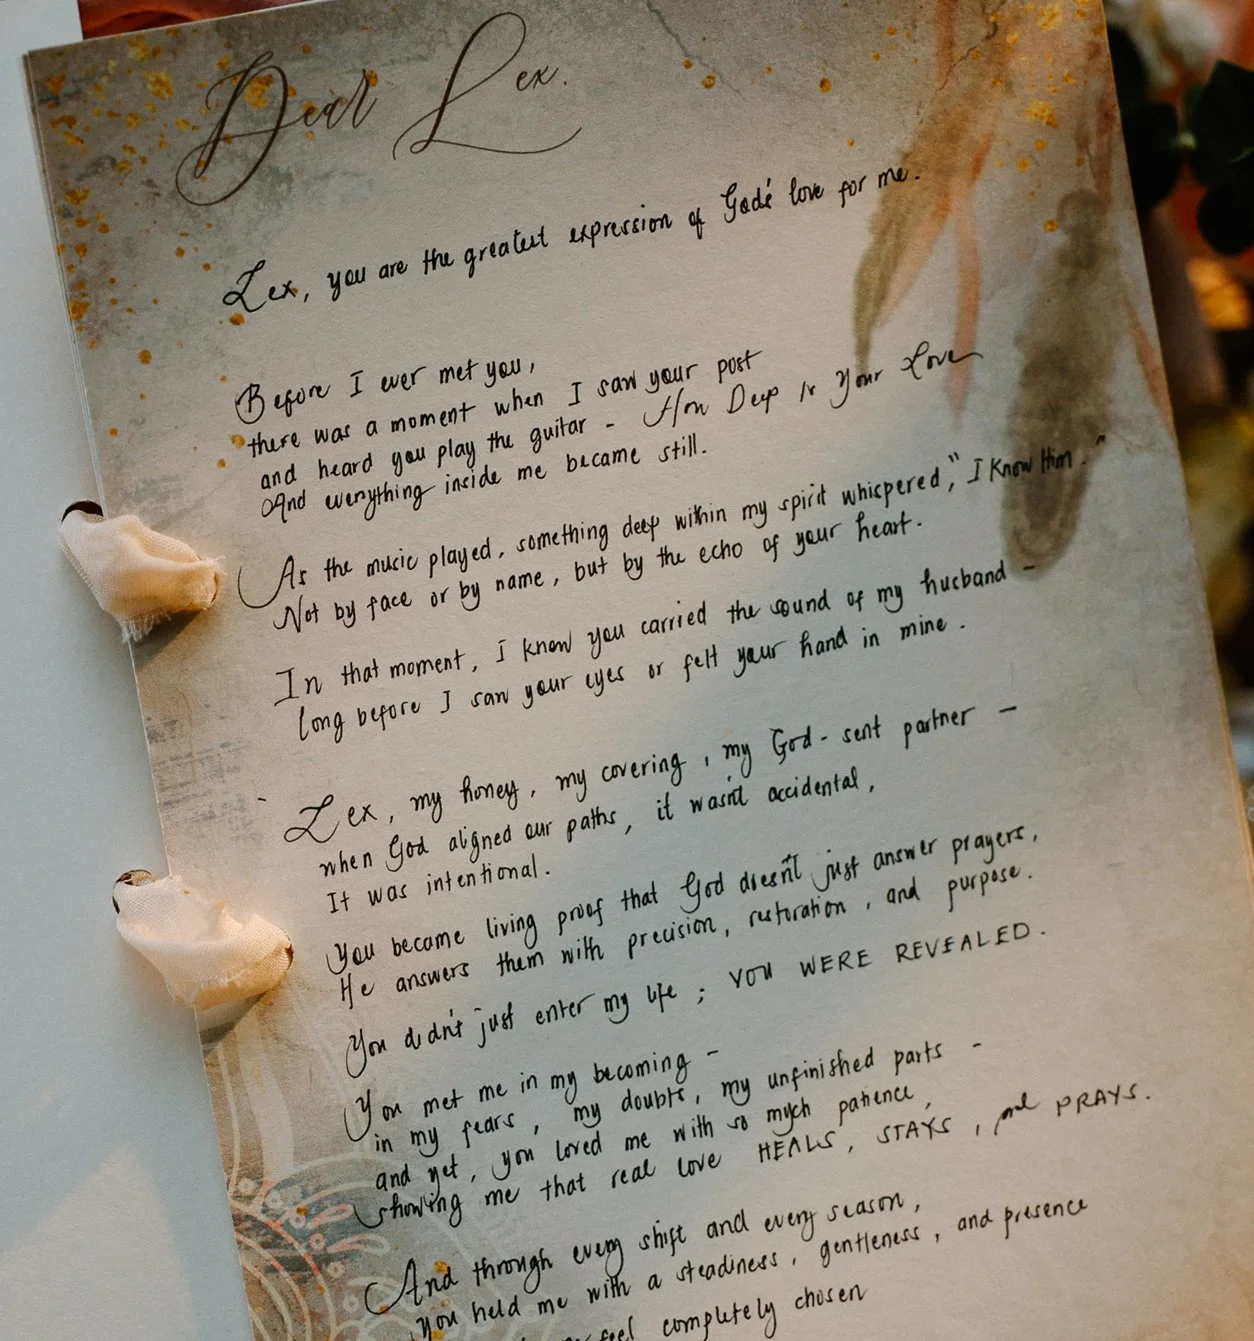 Dear Lex.
Lex, you are the greatest expression of God's love for me.
Before I ever met you,
there was a moment when I saw your post
and heard you play the guitar - How Deep Is Your Love
And everything inside me became still.
As the music played, something deep within my spirit whispered, "I Know Him."
Not by face or by name, but by the echo of your heart.
In that moment, I knew you carried the sound of my husband -
long before I saw your eyes or felt your hand in mine.
Lex, my honey, my covering, my God-sent partner -
when God aligned our paths, it wasn't accidental,
It was intentional.
You became living proof that God doesn't just answer prayers,
He answers them with precision, restoration, and purpose.
You didn't just enter my life; YOU WERE REVEALED.
You met me in my becoming -
in my fears, my doubts, my unfinished parts -
and yet, you loved me with so much patience,
showing me that real love HEALS, STAYS, and PRAYS.
And through every shift and every season,
you held me with a steadiness, gentleness, and presence
feel completely chosen